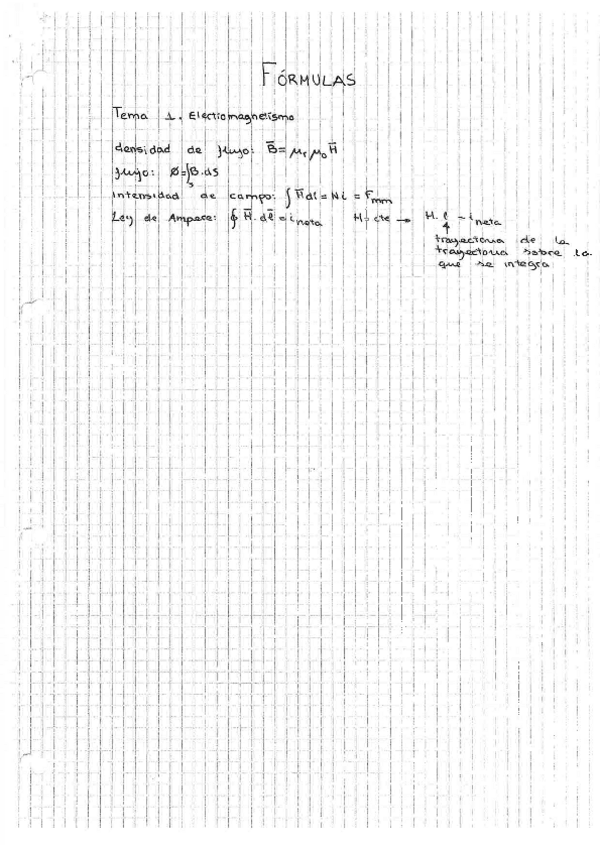 FÓRMULAS
Tema 1. Electromagnetismo
densidad de flujo: B̅ = μr μo H̅
flujo: Ø = ∫s B̅.ds
Intensidad de campo: ∫ H̅ dl = Ni = Fmm
Ley de Ampere: ∮ H̅. dl̅ = i neta H: cte → H. l = i neta
trayectoria de la
trayectoria sobre la
que se integra